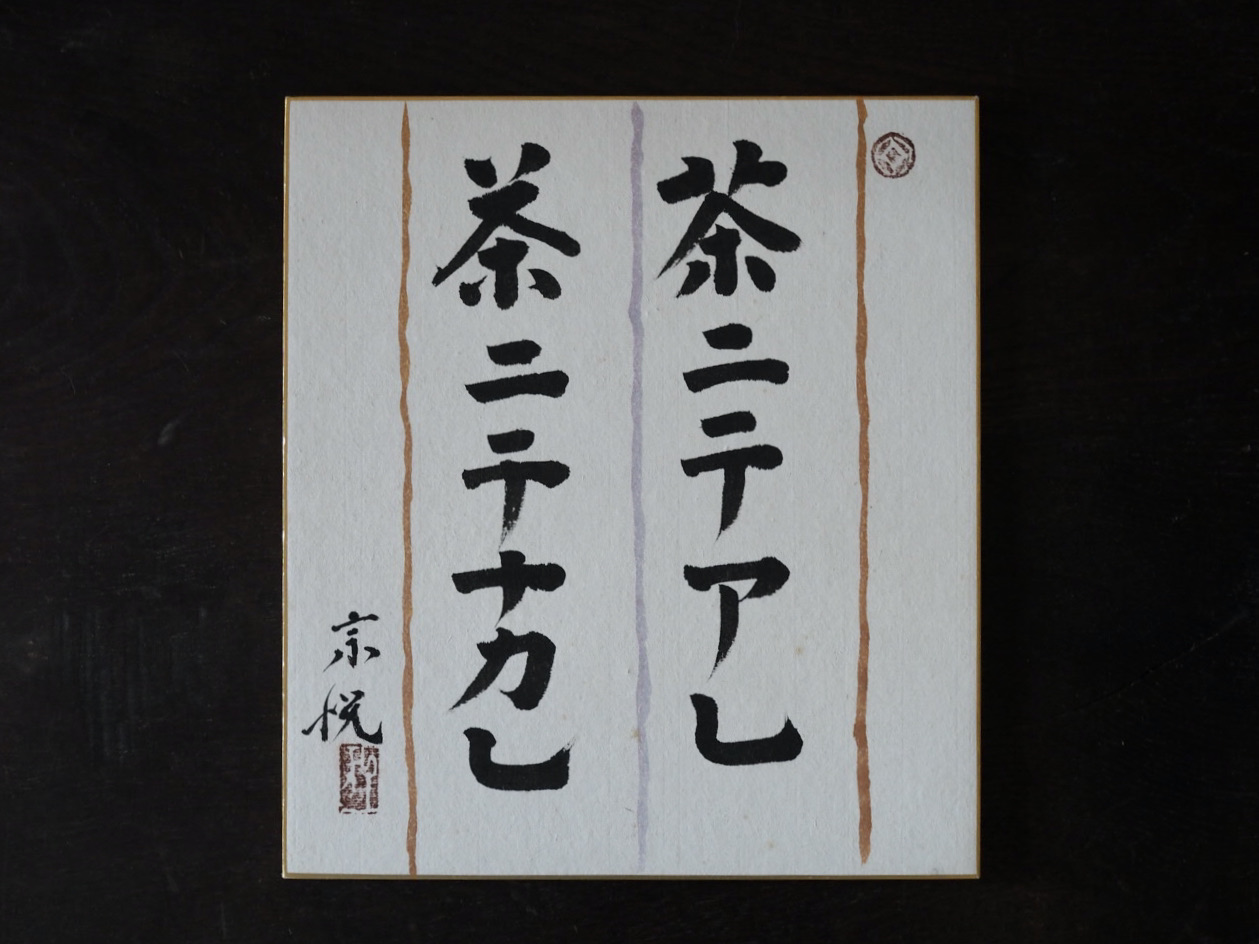 茶ニテアし
茶ニテナカし
宗悦